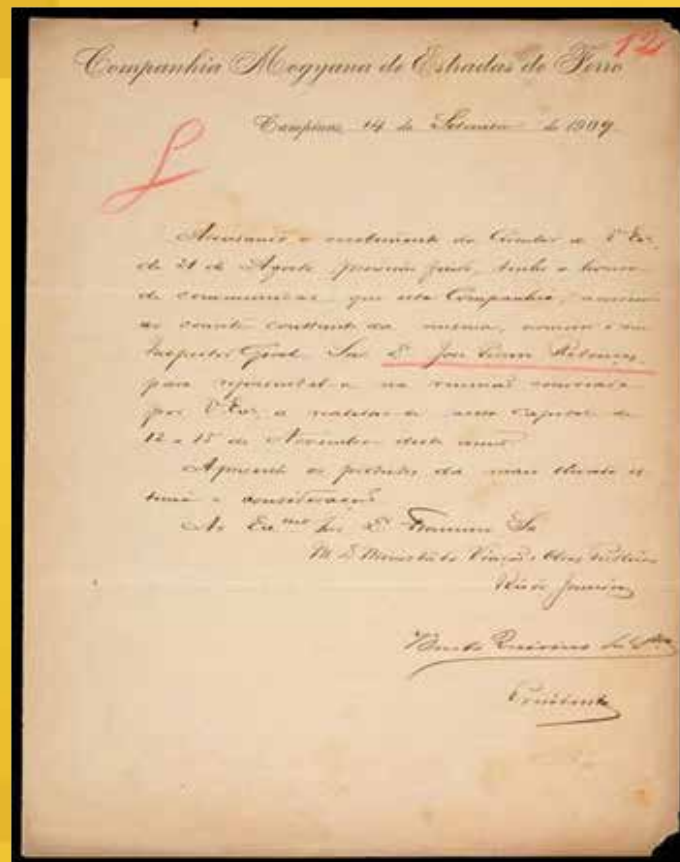 12
Companhia Mogyana de Estradas de Ferro
Campinas, 14 de Setembro de 1909
Accusando o recebimento da Circular de V. Ex.
de 21 de Agosto proximo findo, tenho a honra
de communicar que esta Companhia,
ao convite constante da mesma, nomeou o seu
Inspector Geral Snr. Dr. José Pereira Rebouças,
para represental-a na reunião convocada
por V. Ex. a realizar-se nessa Capital de
12 a 15 de Novembro deste anno.
Apresento os protestos da mais elevada es
tima e consideração
Ao Ex.mo Snr. Dr. Francisco Sá
M. D. Ministro da Viação e Obras Publicas
Rio de Janeiro
Bento Quirino dos
Presidente